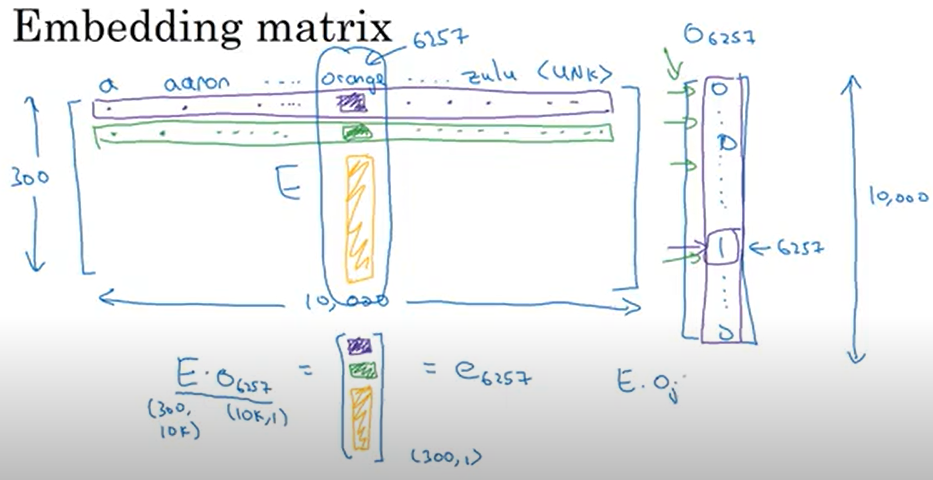 Embedding matrix
6257
O6257
a aaron ..... Orange ..... zulu <UNK>
300
E
10,000
1 ← 6257
0
0
0
10,000
E · O6257 = [ ] = e6257
(300, 10K) (10K,1)
(300,1)
E . Oj